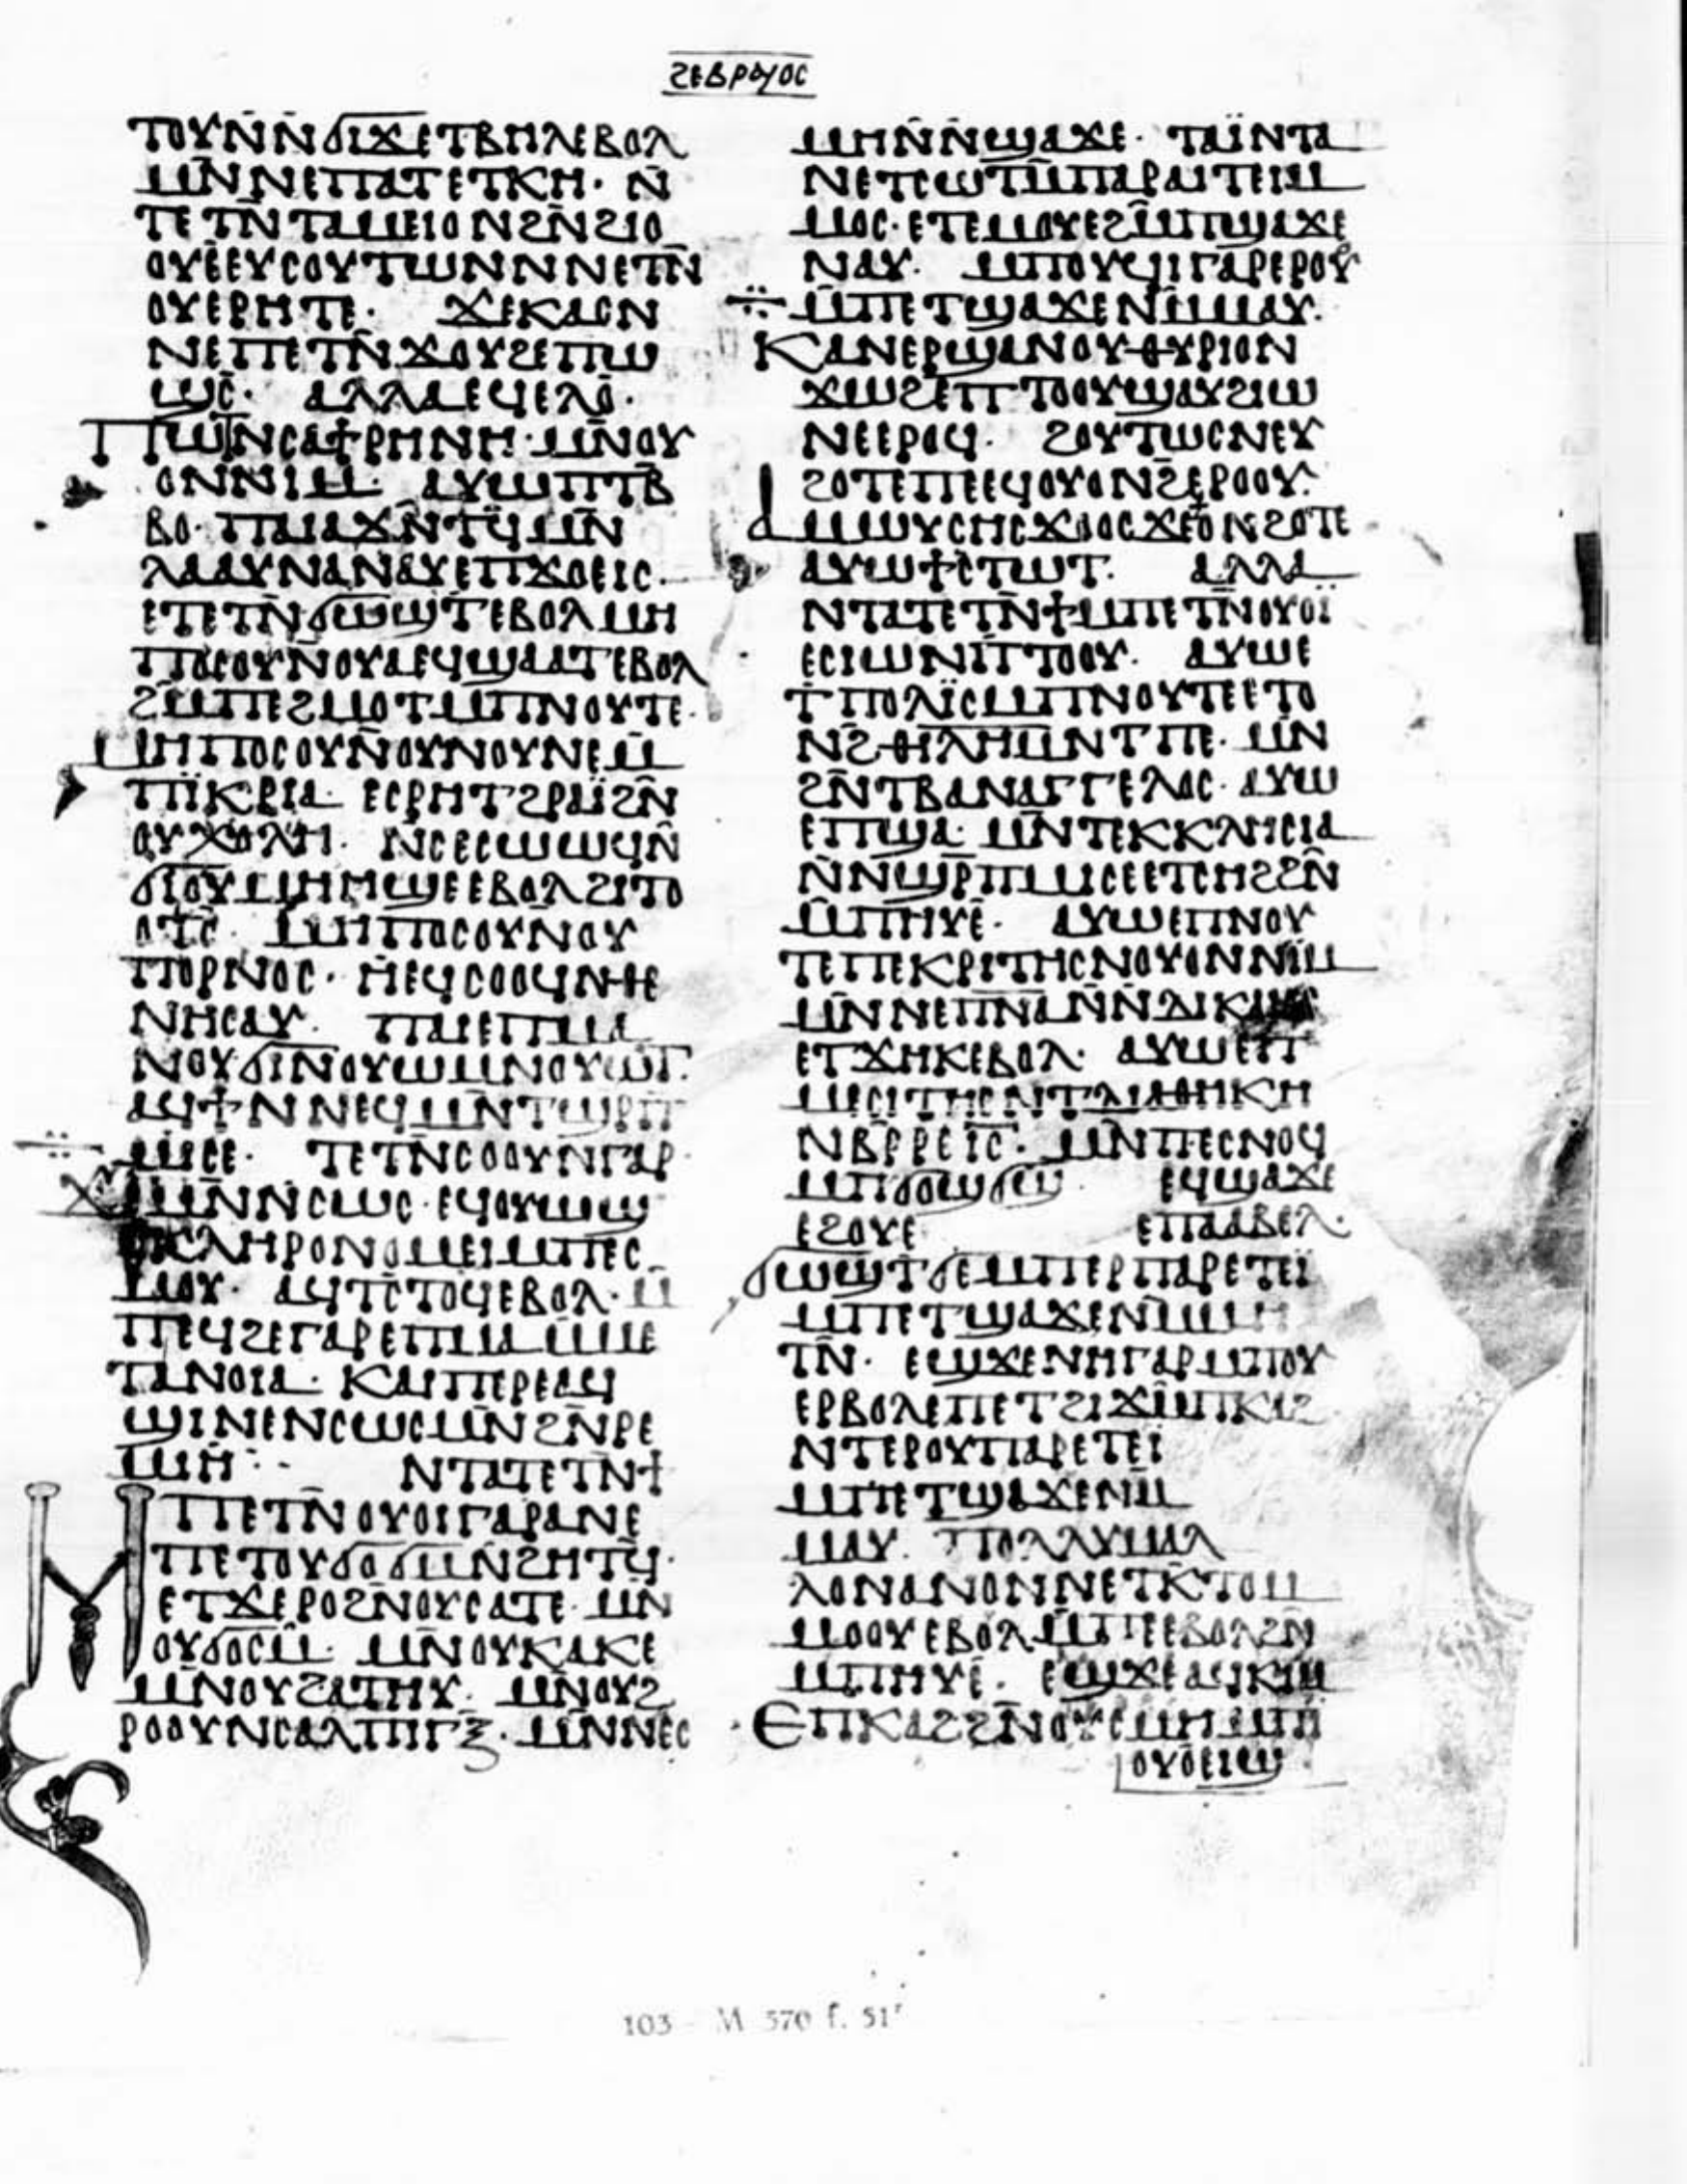 ϩⲉⲃⲣⲁⲓⲟⲥ
ⲧⲟⲩⲛ̄ⲛ̄ϭⲓϫⲉⲧⲃⲏⲗⲉⲃⲟⲗ
ⲙⲛ̄ⲛⲉⲡⲁⲧⲉⲧⲕⲏ· ⲛ̄
ⲧⲉⲧⲛ̄ⲧⲁⲙⲉⲓⲟⲛϩⲛ̄ϩⲓⲟ
ⲟⲩⲉⲉⲩⲥⲟⲩⲧⲱⲛⲛⲛⲉⲧⲛ̄
ⲟⲩⲉⲣⲏⲧⲉ· ϫⲉⲕⲁⲥⲛ
ⲛⲉⲡⲉⲧⲛ̄ϫⲟⲩϩⲉⲡⲱ
ⲱⲥ̄· ⲁⲗⲗⲁⲉϥⲉⲗⲟ̄·
ⲡⲱⲧⲛ̄ⲥⲁϯⲣⲏⲛⲏ· ⲙⲛ̄ⲟⲩ
ⲟⲛⲛⲓⲙ· ⲁⲩⲱⲡⲧⲃ̄
ⲃⲟ· ⲡⲁⲓⲁϫⲛ̄ⲧϥ̄ⲙⲛ̄
ⲗⲁⲁⲩⲛⲁⲛⲁⲩⲉⲡϫⲟⲉⲓⲥ·
ⲉⲧⲉⲧⲛ̄ϭⲱϣⲧⲉⲃⲟⲗⲙⲏ
ⲡⲟⲥⲟⲩⲛ̄ⲟⲩⲁⲉϥϣⲁⲁⲧⲉⲃⲟⲗ
ϩⲙ̄ⲡⲉϩⲙⲟⲧⲙ̄ⲡⲛⲟⲩⲧⲉ·
ⲙⲏⲡⲟⲥⲟⲩⲛ̄ⲟⲩⲛⲟⲩⲛⲉⲙ̄
ⲡⲓ̈ⲕⲣⲓⲁ· ⲉⲥⲣⲏⲧϩⲣⲁⲓ̈ϩⲛ̄
ⲟⲩⲭⲟⲗⲏ· ⲛ̄ⲥⲉⲥⲱⲱϥⲛ̄
ϭⲓⲟⲩⲙⲏⲏϣⲉⲉⲃⲟⲗϩⲓⲧⲟ
ⲟⲧⲥ̄· ⲙⲏⲡⲟⲥⲟⲩⲛ̄ⲟⲩ
ⲡⲟⲣⲛⲟⲥ· ⲏⲉϥⲥⲟⲟϥⲛ̄ⲑⲉ
ⲛⲏⲥⲁⲩ· ⲡⲁⲓⲉⲡⲙⲁ
ⲛⲟⲩϭⲓⲛⲟⲩⲱⲙⲛⲟⲩⲱⲧ·
ⲁϥϯⲛⲛⲉϥⲙⲛ̄ⲧϣⲣ̄ⲡ
ⲙⲓⲥⲉ· ⲧⲉⲧⲛ̄ⲥⲟⲟⲩⲛⲅⲁⲣ
ϫⲙⲛ̄ⲛⲥⲱⲥ· ⲉϥⲟⲩⲱϣ
ⲉⲕⲗⲏⲣⲟⲛⲟⲙⲉⲓⲙ̄ⲡⲉⲥ
ⲙⲟⲩ· ⲁϥⲧⲥ̄ⲧⲟϥⲉⲃⲟⲗ· ⲙ̄
ⲡⲉϥϩⲉⲅⲁⲣⲉⲡⲙⲁⲙ̄ⲙⲉ
ⲧⲁⲛⲟⲓⲁ· ⲕⲁⲓⲡⲉⲣⲉⲁϥ
ϣⲓⲛⲉⲛⲥⲱⲥⲙⲛ̄ϩⲛ̄ⲣⲉ
ⲙⲓⲏ· ⲛⲧⲁⲧⲉⲧⲛ̄ϯ
ⲙⲡⲉⲧⲛ̄ⲟⲩⲟⲓⲅⲁⲣⲁⲛⲉ
ⲡⲉⲧⲟⲩϭⲟϭⲙ̄ⲛϩⲏⲧϥ̄·
ⲉⲧϫⲉⲣⲟϩⲛ̄ⲟⲩⲥⲁⲧⲉ· ⲙⲛ̄
ⲟⲩϭⲟⲥⲙ̄· ⲙⲛ̄ⲟⲩⲕⲁⲕⲉ
ⲙⲛ̄ⲟⲩϩⲁⲧⲏⲩ· ⲙⲛ̄ⲟⲩϩ
ⲣⲟⲟⲩⲛⲥⲁⲗⲡⲓⲅⲝ· ⲙⲛ̄ⲛⲉⲥ
ⲙⲏⲛ̄ⲛϣⲁϫⲉ· ⲧⲁⲓ̈ⲛⲧⲁ
ⲛⲉⲧⲥⲱⲧⲙ̄ⲡⲁⲣⲁⲓⲧⲉⲓⲙ
ⲙⲟⲥ· ⲉⲧⲉⲙⲟⲩⲉϩⲙ̄ⲡϣⲁϫⲉ
ⲛⲁⲩ· ⲙⲡⲟⲩϥⲓⲅⲁⲣⲉⲣⲟⲩ
ⲙ̄ⲡⲉⲧϣⲁϫⲉⲛⲙ̄ⲙⲁⲩ·
ⲕⲁⲛⲉⲣϣⲁⲛⲟⲩⲑⲩⲣⲓⲟⲛ
ϫⲱϩⲉⲡⲧⲟⲟⲩϣⲁⲩϩⲓⲱ
ⲛⲉⲉⲣⲟϥ· ϩⲟⲩⲧⲱⲥⲛⲉⲩ
ϩⲟⲧⲉⲡⲉⲉϥⲟⲩⲟⲛϩ̄ⲉⲣⲟⲟⲩ·
ⲁⲙⲱⲩⲥⲏⲥϫⲟⲟⲥϫⲉϯⲟⲛϩⲟⲧⲉ
ⲁⲩⲱϯⲥⲧⲱⲧ· ⲁⲗⲗⲁ
ⲛⲧⲁⲧⲉⲧⲛ̄ϯⲙⲡⲉⲧⲛ̄ⲟⲩⲟⲓ̈
ⲉⲥⲓⲱⲛⲡⲧⲟⲟⲩ· ⲁⲩⲱⲉ
ⲧⲡⲟⲗⲓ̈ⲥⲙⲡⲛⲟⲩⲧⲉⲉⲧⲟ
ⲛϩ̄ⲑⲓⲗⲏⲙ̄ⲛⲧⲡⲉ· ⲙⲛ̄
ϩⲛ̄ⲧⲃⲁⲛⲁⲅⲅⲉⲗⲟⲥ· ⲁⲩⲱ
ⲉⲡϣⲁ· ⲙⲛ̄ⲧⲉⲕⲕⲗⲏⲥⲓⲁ
ⲛ̄ⲛϣⲣ̄ⲡⲙⲙⲓⲥⲉⲉⲧⲥⲏϩϩⲛ̄
ⲙ̄ⲡⲏⲩⲉ̄· ⲁⲩⲱⲉⲡⲛⲟⲩ
ⲧⲉⲡⲉⲕⲣⲓⲧⲏⲥⲛⲟⲩⲟⲛⲛⲓⲙ
ⲙⲛ̄ⲛⲉⲡⲛ̄ⲁⲛ̄ⲛⲇⲓⲕⲁⲓⲟⲥ
ⲉⲧϫⲏⲕⲉⲃⲟⲗ· ⲁⲩⲱⲉⲡ
ⲙⲉⲥⲓⲧⲏⲥⲛⲧⲇⲓⲁⲑⲏⲕⲏ
ⲛⲃ̄ⲣⲣⲉⲓⲥ̄· ⲙⲛ̄ⲡⲉⲥⲛⲟϥ
ⲙⲡϭⲟϣϭϣ̄· ⲉϥϣⲁϫⲉ
ⲉϩⲟⲩⲉ ⲉⲡⲁⲁⲃⲉⲗ·
ϭⲱϣⲧϭⲉⲙⲡⲉⲣⲡⲁⲣⲉⲧⲉⲓ̈
ⲙⲡⲉⲧϣⲁϫⲉⲛⲙ̄ⲙⲏ
ⲧⲛ̄· ⲉϣϫⲉⲛⲏⲅⲁⲣⲙⲡⲟⲩ
ⲉⲣⲃⲟⲗⲉⲡⲉⲧϩⲓϫⲙ̄ⲡⲕⲁϩ
ⲛⲧⲉⲣⲟⲩⲡⲁⲣⲉⲧⲉⲓ̈
ⲙⲡⲉⲧϣⲁϫⲉⲛⲙ̄
ⲙⲁⲩ· ⲡⲟⲗⲗⲩⲙⲁⲗ
ⲗⲟⲛⲁⲛⲟⲛⲛⲉⲧⲕ̄ⲧⲟⲙ
ⲙⲟⲟⲩⲉⲃⲟⲗⲙ̄ⲡⲉⲉⲃⲟⲗϩⲛ̄
ⲙⲡⲏⲩⲉ̄· ⲉϣϫⲉⲁϥⲕⲓⲙ
ⲉⲡⲕⲁϩϩⲛ̄ⲟⲩⲥⲙⲏⲙⲡⲓ
ⲟⲩⲟⲉⲓϣ
103 - M 570 f. 51ʳ